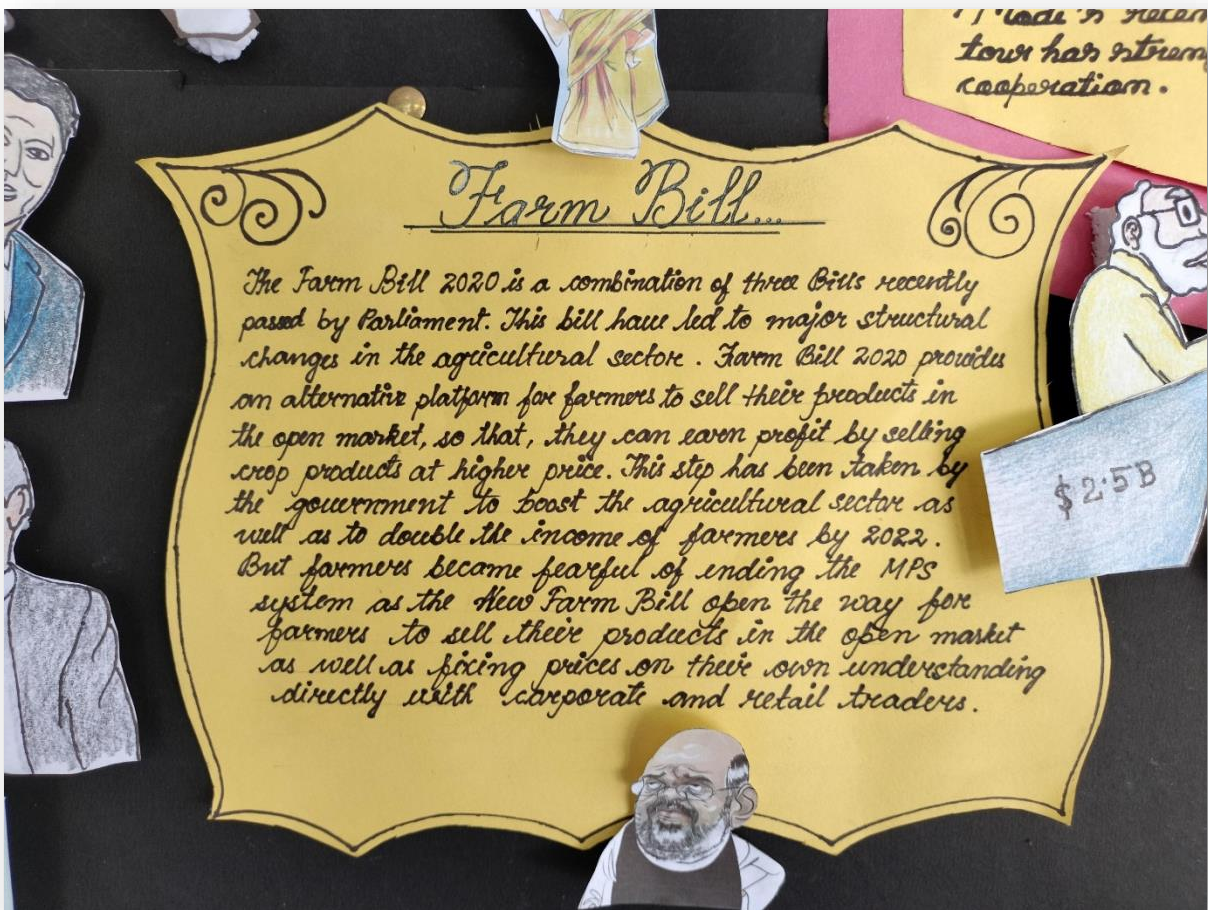 Modi's recen
tour has stren
cooperation.
Farm Bill...
The Farm Bill 2020 is a combination of three Bills recently
passed by Parliament. This bill have led to major structural
changes in the agricultural sector. Farm Bill 2020 provides
an alternative platform for farmers to sell their products in
the open market, so that, they can earn profit by selling
crop products at higher price. This step has been taken by
the government to boost the agricultural sector as
well as to double the income of farmers by 2022.
But farmers became fearful of ending the MPS
system as the New Farm Bill open the way for
farmers to sell their products in the open market
as well as fixing prices on their own understanding
directly with corporate and retail traders.
$2.5B